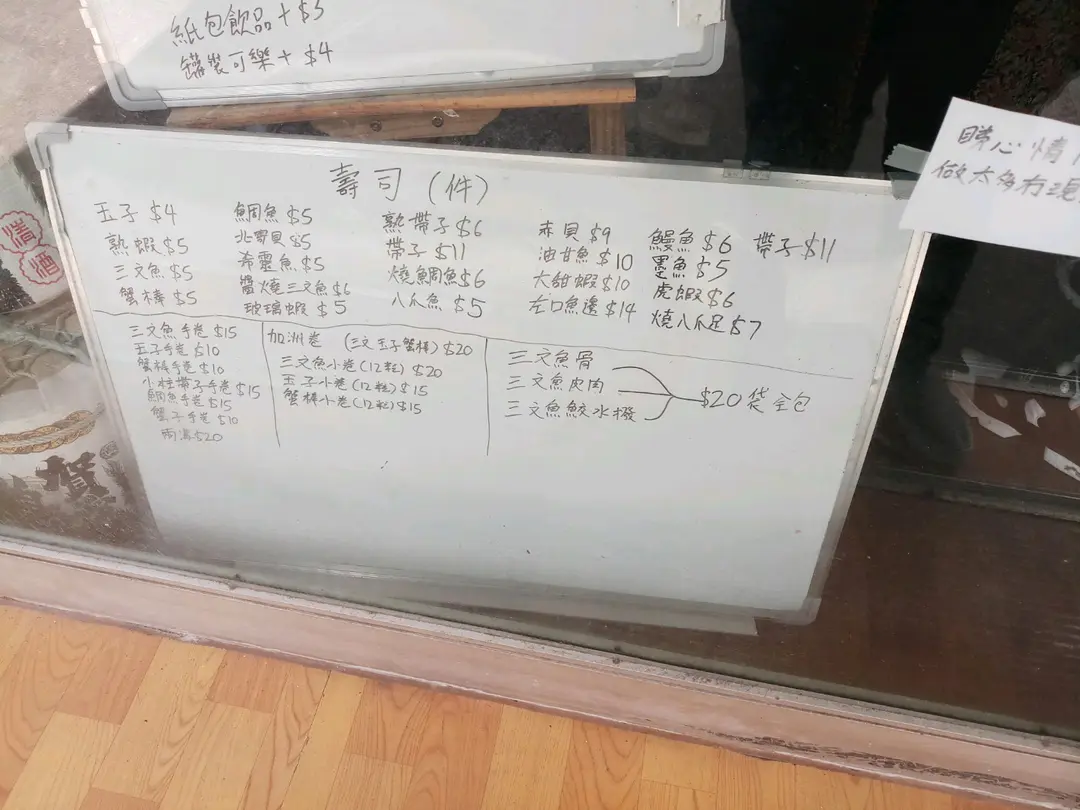 紙包飲品+$5
罐裝可樂+$4
壽司(件)
玉子 $4
熟蝦 $5
三文魚 $5
蟹棒 $5
鯛魚 $5
北寄貝 $5
希靈魚 $5
醬燒三文魚 $6
玻璃蝦 $5
熟帶子 $6
帶子 $11
燒鯛魚 $6
八爪魚 $5
赤貝 $9
油甘魚 $10
大甜蝦 $10
左口魚邊 $14
鰻魚 $6
墨魚 $5
虎蝦 $6
燒八爪足 $7
帶子 $11
三文魚手卷 $15
玉子手卷 $10
蟹棒手卷 $10
小柱帶子手卷 $15
鯛魚手卷 $15
蟹子手卷 $10
兩溝 $20
加洲卷 (三文玉子蟹棒) $20
三文魚小卷(12粒) $20
玉子小卷(12粒) $15
蟹棒小卷(12粒) $15
三文魚骨
三文魚皮肉
三文魚鮫水撥
$20 袋 全包
睇心情
做太多冇
清
酒
賀